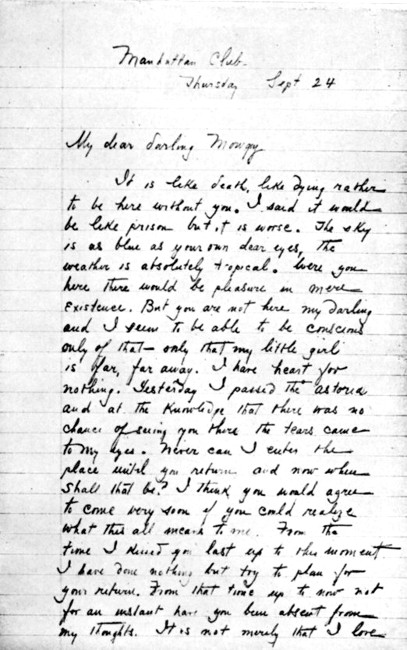 Manhattan Club.
Thursday Sept 24
My dear darling
It is like death, like dying rather
to be here without you. I said it would
be like prison but it is worse. The sky
is as blue as your own dear eyes, the
weather is absolutely tropical. Were you
here there would be pleasure in mere
existence. But you are not here my darling
and I seem to be able to be conscious
only of that — only that my little girl
is far, far away. I have heart for
nothing. Yesterday I passed the astoria
and at the knowledge that there was no
chance of seeing you there the tears came
to my eyes. Never can I enter the
place until you return and now when
shall that be? I think you would agree
to come very soon if you could realize
what this all means to me. From the
time I kissed you last up to this moment
I have done nothing but try to plan for
your return. From that time up to now not
for an instant have you been absent from
my thoughts. It is not merely that I love